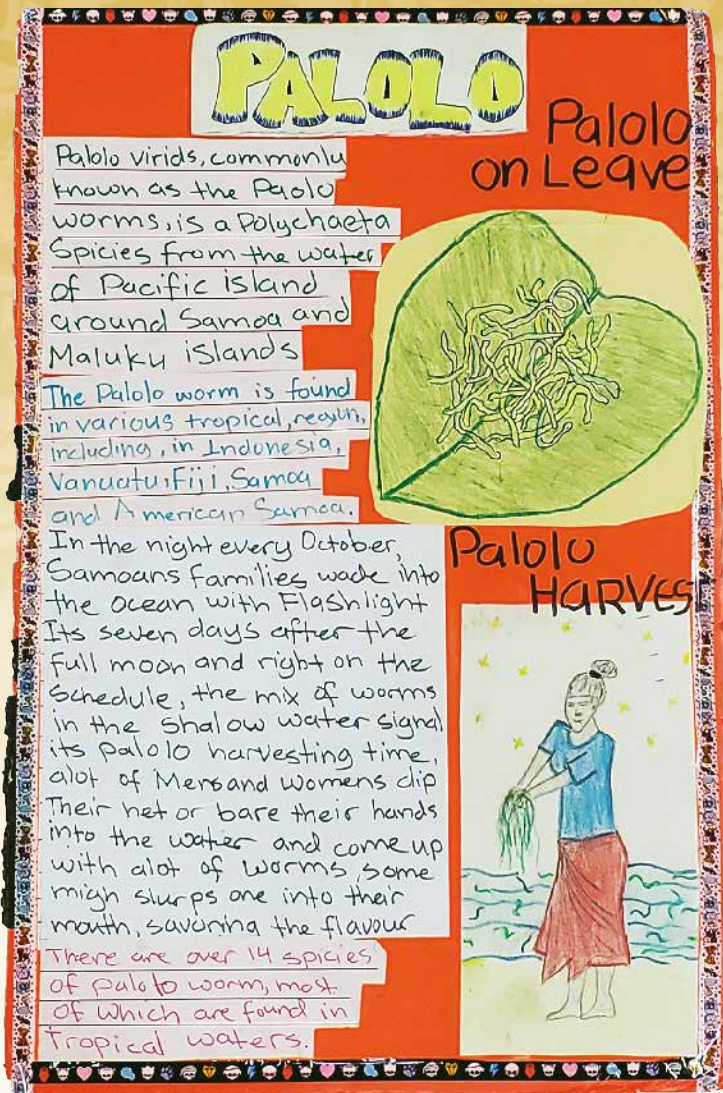 PALOLO
Palolo virids, commonly
known as the Paolo
worms, is a Polychaeta
Spicies from the water
of Pacific island
around Samoa and
Maluku islands
The Palolo worm is found
in various tropical, region,
including, in Indonesia,
Vanuatu, Fiji, Samoa
and American Samoa.
In the night every October,
Samoans families wade into
the ocean with Flashlight
Its seven days after the
full moon and right on the
schedule, the mix of worms
In the shalow water signal
its palolo harvesting time,
alot of Mens and womens dip
Their net or bare their hands
into the water and come up
with alot of worms, some
migh slurps one into their
mouth, savoring the flavour
There are over 14 spicies
of palolo worm, most
of which are found in
Tropical waters.
Palolo
on Leave
Palolo
HARVES